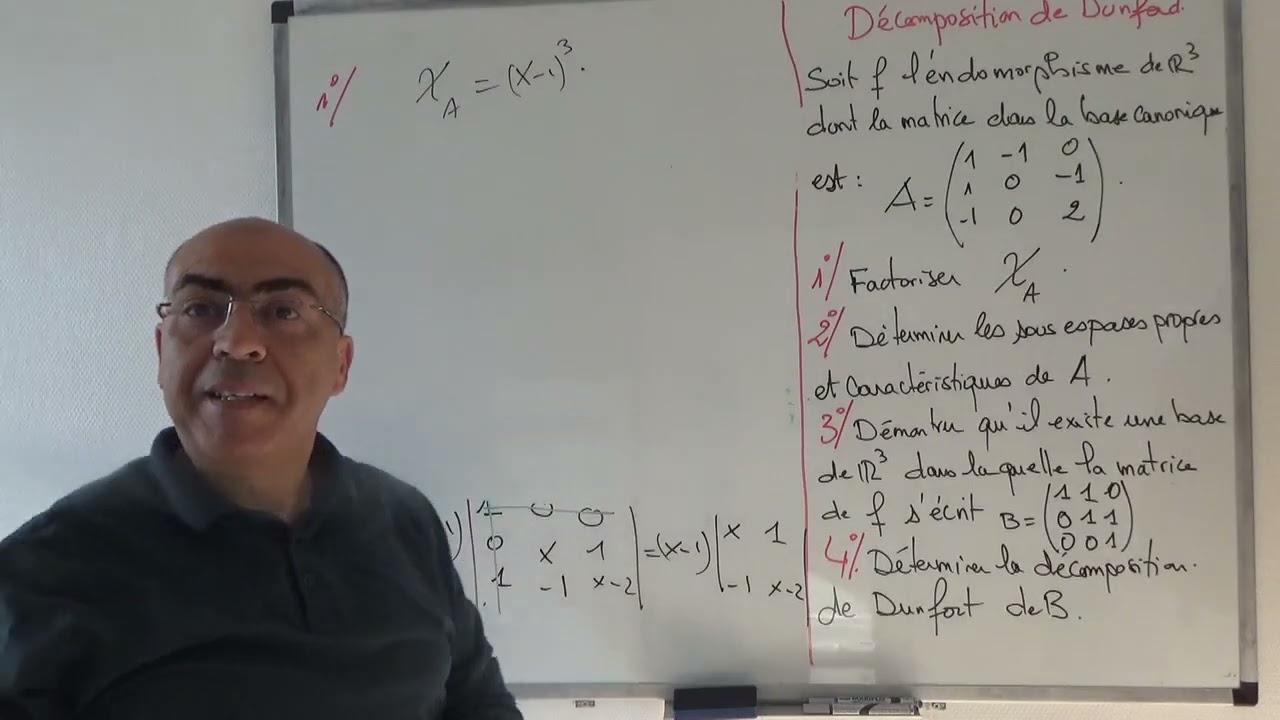 1°/ χ_A = (X-1)^3.
) | 1 0 0 | = (x-1) | x 1 |
| 0 x 1 |
| 1 -1 x-2 | | -1 x-2 |
Décomposition de Dunford.
Soit f l'endomorphisme de R^3
dont la matrice dans la base canonique
est : A = ( 1 -1 0 ) .
( 1 0 -1 )
( -1 0 2 )
1°/ Factoriser χ_A .
2°/ Déterminer les sous espases propres
et Caractéristiques de A .
3°/ Démontrer qu'il existe une base
de R^3 dans laquelle la matrice
de f s'écrit B = ( 1 1 0 )
( 0 1 1 )
( 0 0 1 )
4°/ Déterminer la décomposition.
de Dunfort de B .